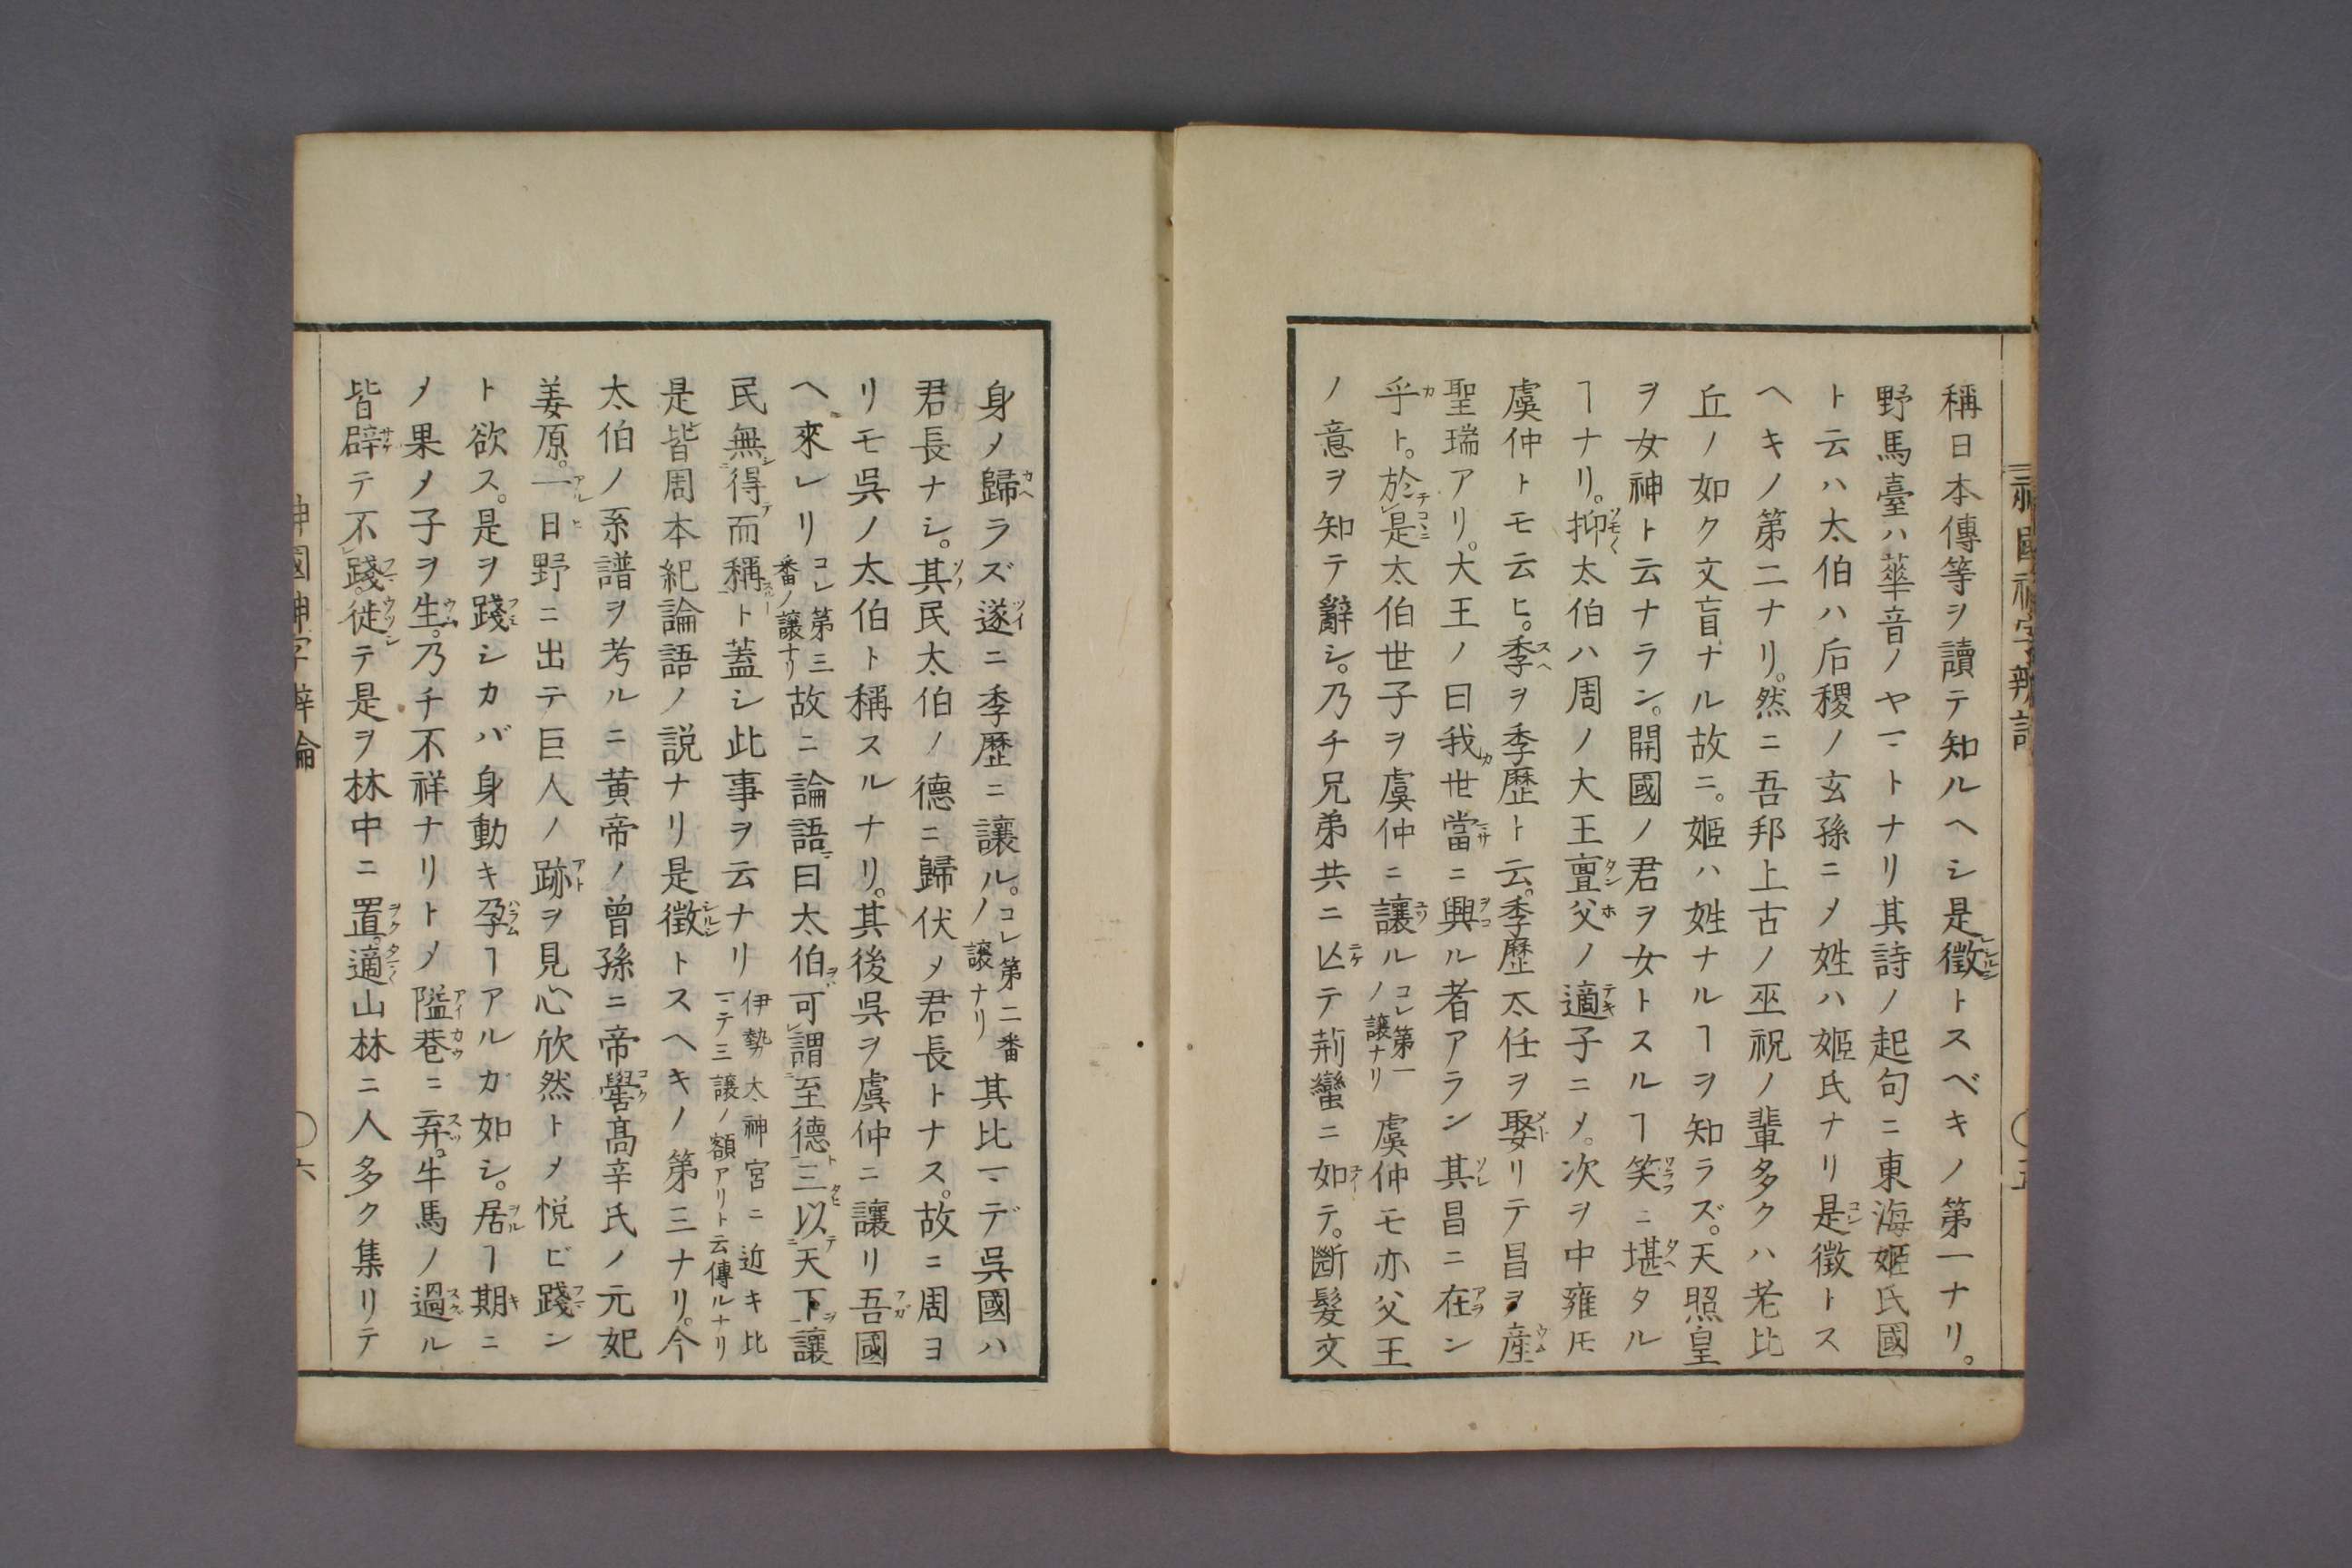 神國神字辨論
五
稱日本傳等ヲ讀テ知ルヘシ是徴トスベキノ第一ナリ。
野馬臺ハ華音ノヤマトナリ其詩ノ起句ニ東海姬氏國
ト云ハ太伯ハ后稷ノ玄孫ニメ姓ハ姬氏ナリ是徴トス
ヘキノ第二ナリ。然ニ吾邦上古ノ巫祝ノ輩多クハ老比
丘ノ如ク文盲ナル故ニ。姬ハ姓ナルヿヲ知ラズ。天照皇
ヲ女神ト云ナラン。開國ノ君ヲ女トスルヿ笑ニ堪タル
ヿナリ。抑太伯ハ周ノ大王亶父ノ適子ニメ。次ヲ中雍圧
虞仲トモ云ヒ。季ヲ季歷ト云。季歷太任ヲ娶リテ昌ヲ産
聖瑞アリ。大王ノ曰我世當ニ興ル者アラン其昌ニ在ン
乎ト。於是太伯世子ヲ虞仲ニ讓ルコレ第一ノ讓ナリ虞仲モ亦父王
ノ意ヲ知テ辭シ。乃チ兄弟共ニ亾テ荊蠻ニ如テ。斷髮文
身ノ歸ラズ遂ニ季歷ニ讓ル。コレ第二番ノ讓ナリ其比マデ吳國ハ
君長ナシ。其民太伯ノ德ニ歸伏メ君長トナス。故ニ周ヨ
リモ吳ノ太伯ト稱スルナリ。其後吳ヲ虞仲ニ讓リ吾國
ヘ來レリコレ第三番ノ讓ナリ故ニ論語曰太伯可謂至德三以天下讓
民無得而稱ト蓋シ此事ヲ云ナリ伊勢太神宮ニ近キ比マテ三讓ノ額アリト云傳ルナリ
是皆周本紀論語ノ説ナリ是徴トスヘキノ第三ナリ。今
太伯ノ系譜ヲ考ルニ黄帝ノ曾孫ニ帝嚳高辛氏ノ元妃
姜原。一日野ニ出テ巨人ノ跡ヲ見心欣然トメ悦ビ踐ン
ト欲ス。是ヲ踐シカバ身動キ孕ヿアルカ如シ。居ヿ期ニ
メ果メ子ヲ生。乃チ不祥ナリトメ隘巷ニ弃。牛馬ノ過ル
皆辟テ不踐。徙テ是ヲ林中ニ置。適山林ニ人多ク集リテ
神國神字辨論
六